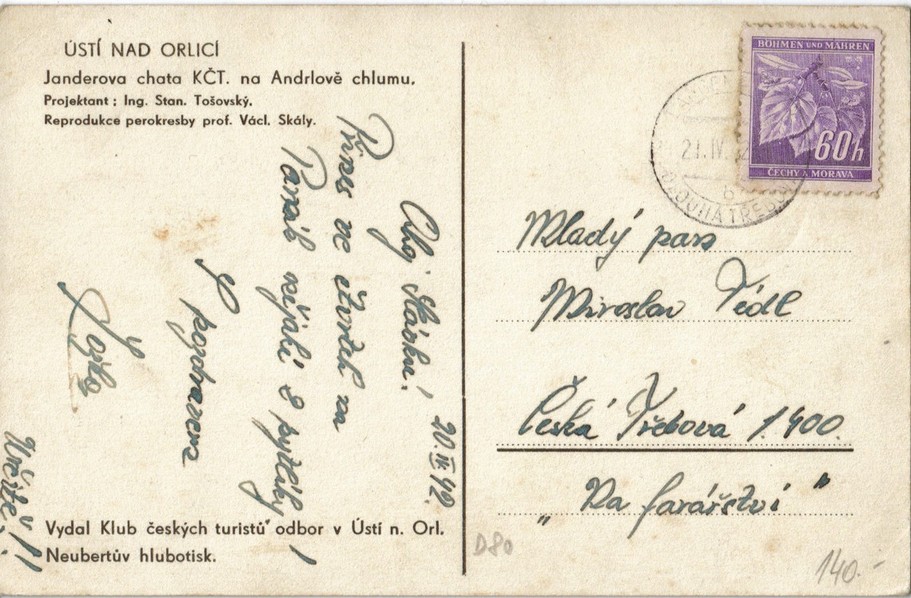 ÚSTÍ NAD ORLICÍ
Janderova chata KČT. na Andrlově chlumu.
Projektant : Ing. Stan. Tošovský.
Reprodukce perokresby prof. Václ. Skály.
20.IV.42.
Ahoj Slávku!
Přines ve čtvrtek na
Parník nějaké 2 pytlíky!
S pozdravem
Vydal Klub českých turistů odbor v Ústí n. Orl.
Neubertův hlubotisk.
BÖHMEN UND MÄHREN
60h
ČECHY A MORAVA
21.IV.
Mladý pan
Miroslav Tédl
Česká Třebová 1.400.
„Na farářství"
D80
140.-